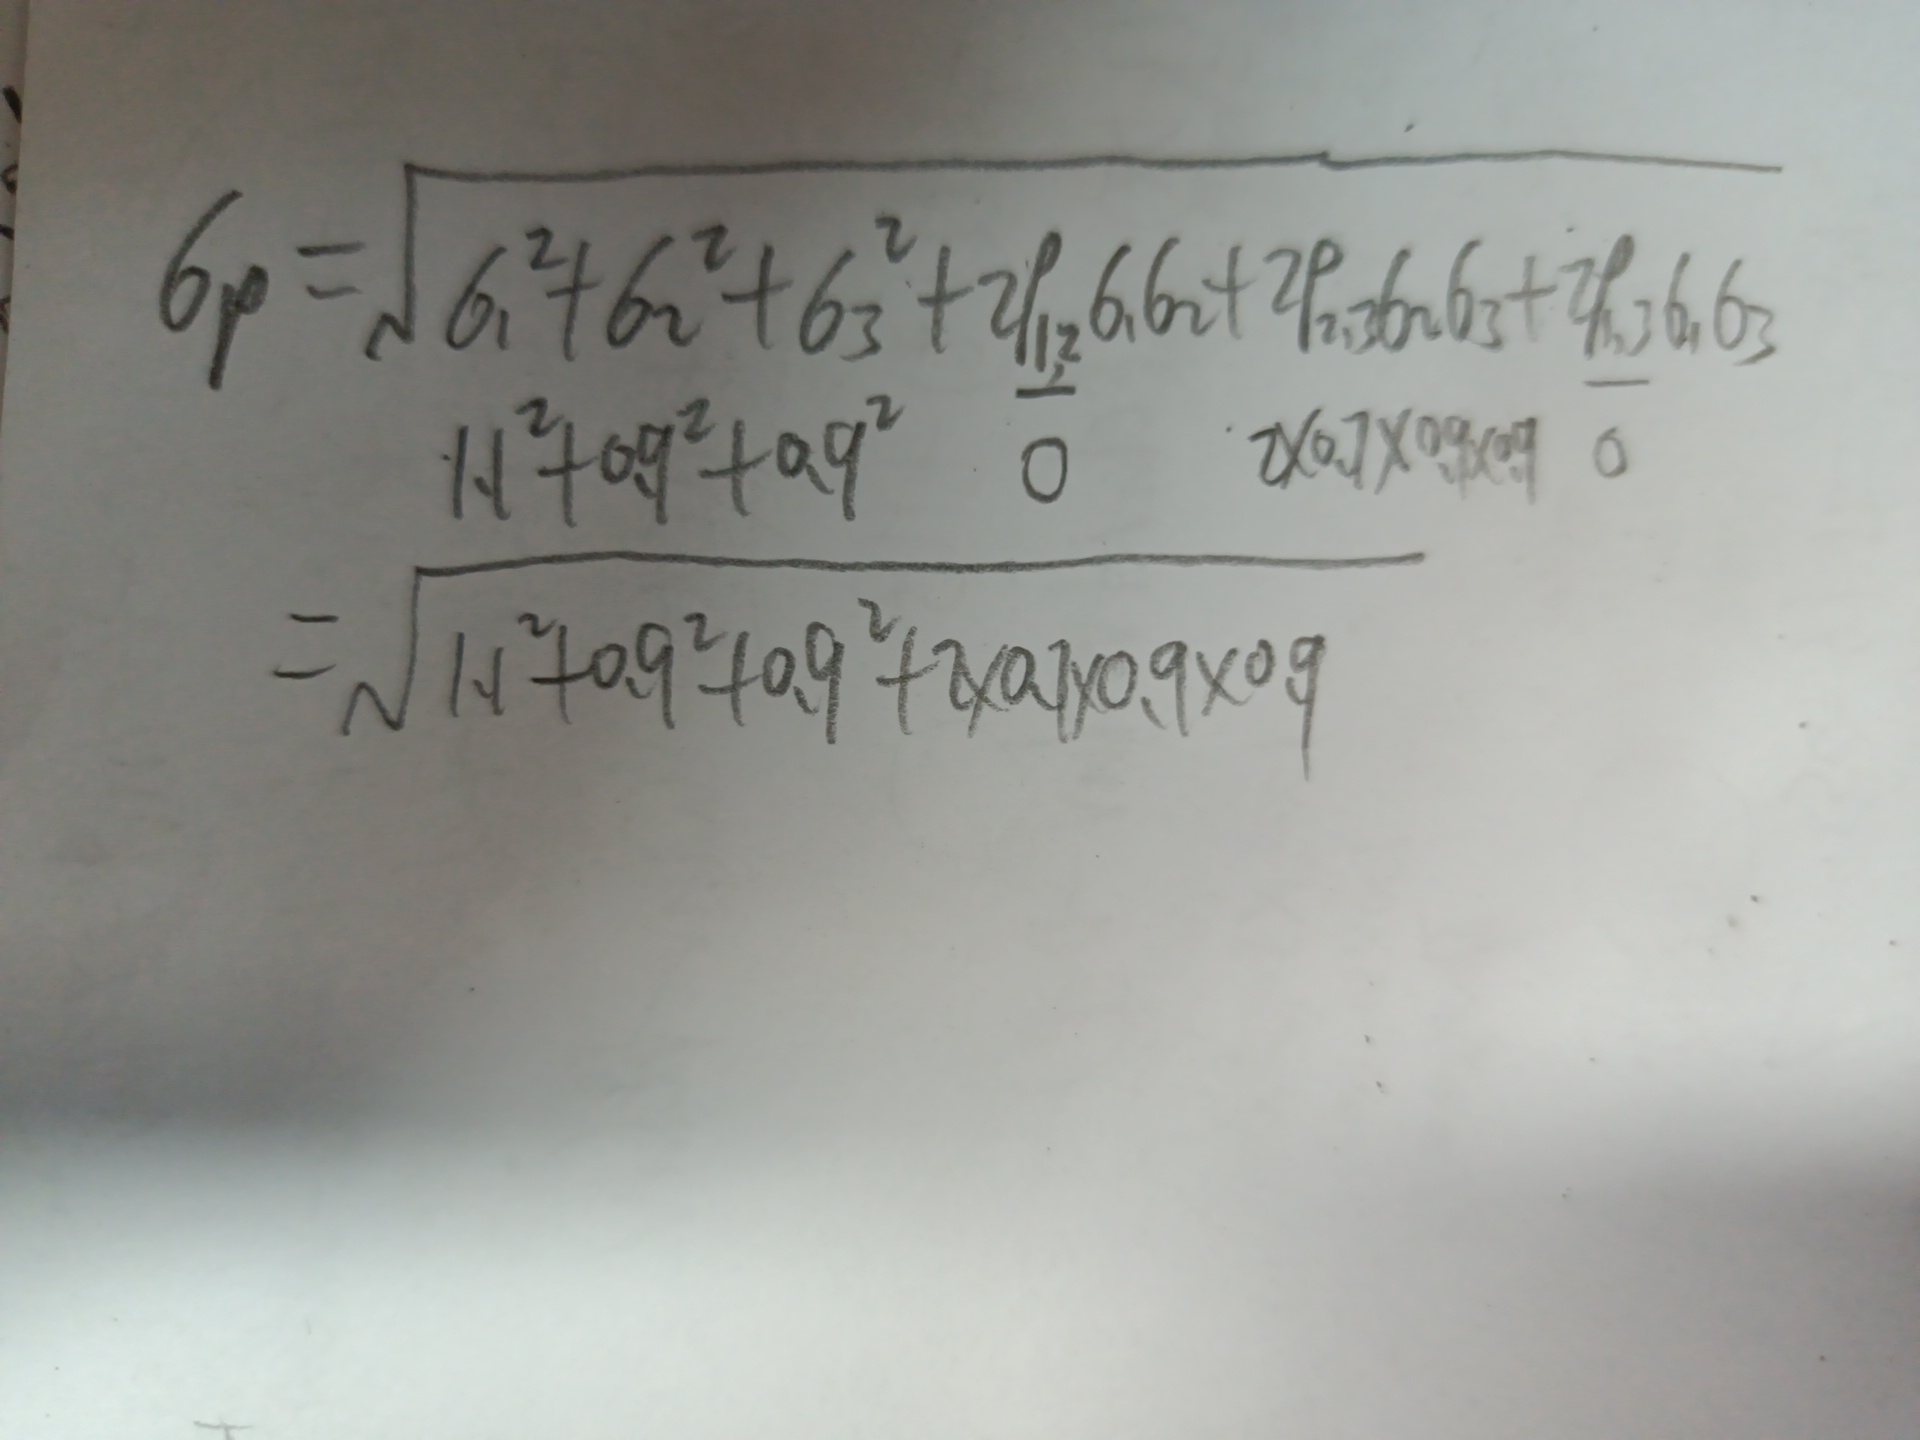 σp = √(σ₁² + σ₂² + σ₃² + 2ρ₁,₂σ₁σ₂ + 2ρ₂,₃σ₂σ₃ + 2ρ₁,₃σ₁σ₃)
1.1² + 0.9² + 0.9² 0 2×0.7×0.9×0.9 0
= √(1.1² + 0.9² + 0.9² + 2×0.7×0.9×0.9)